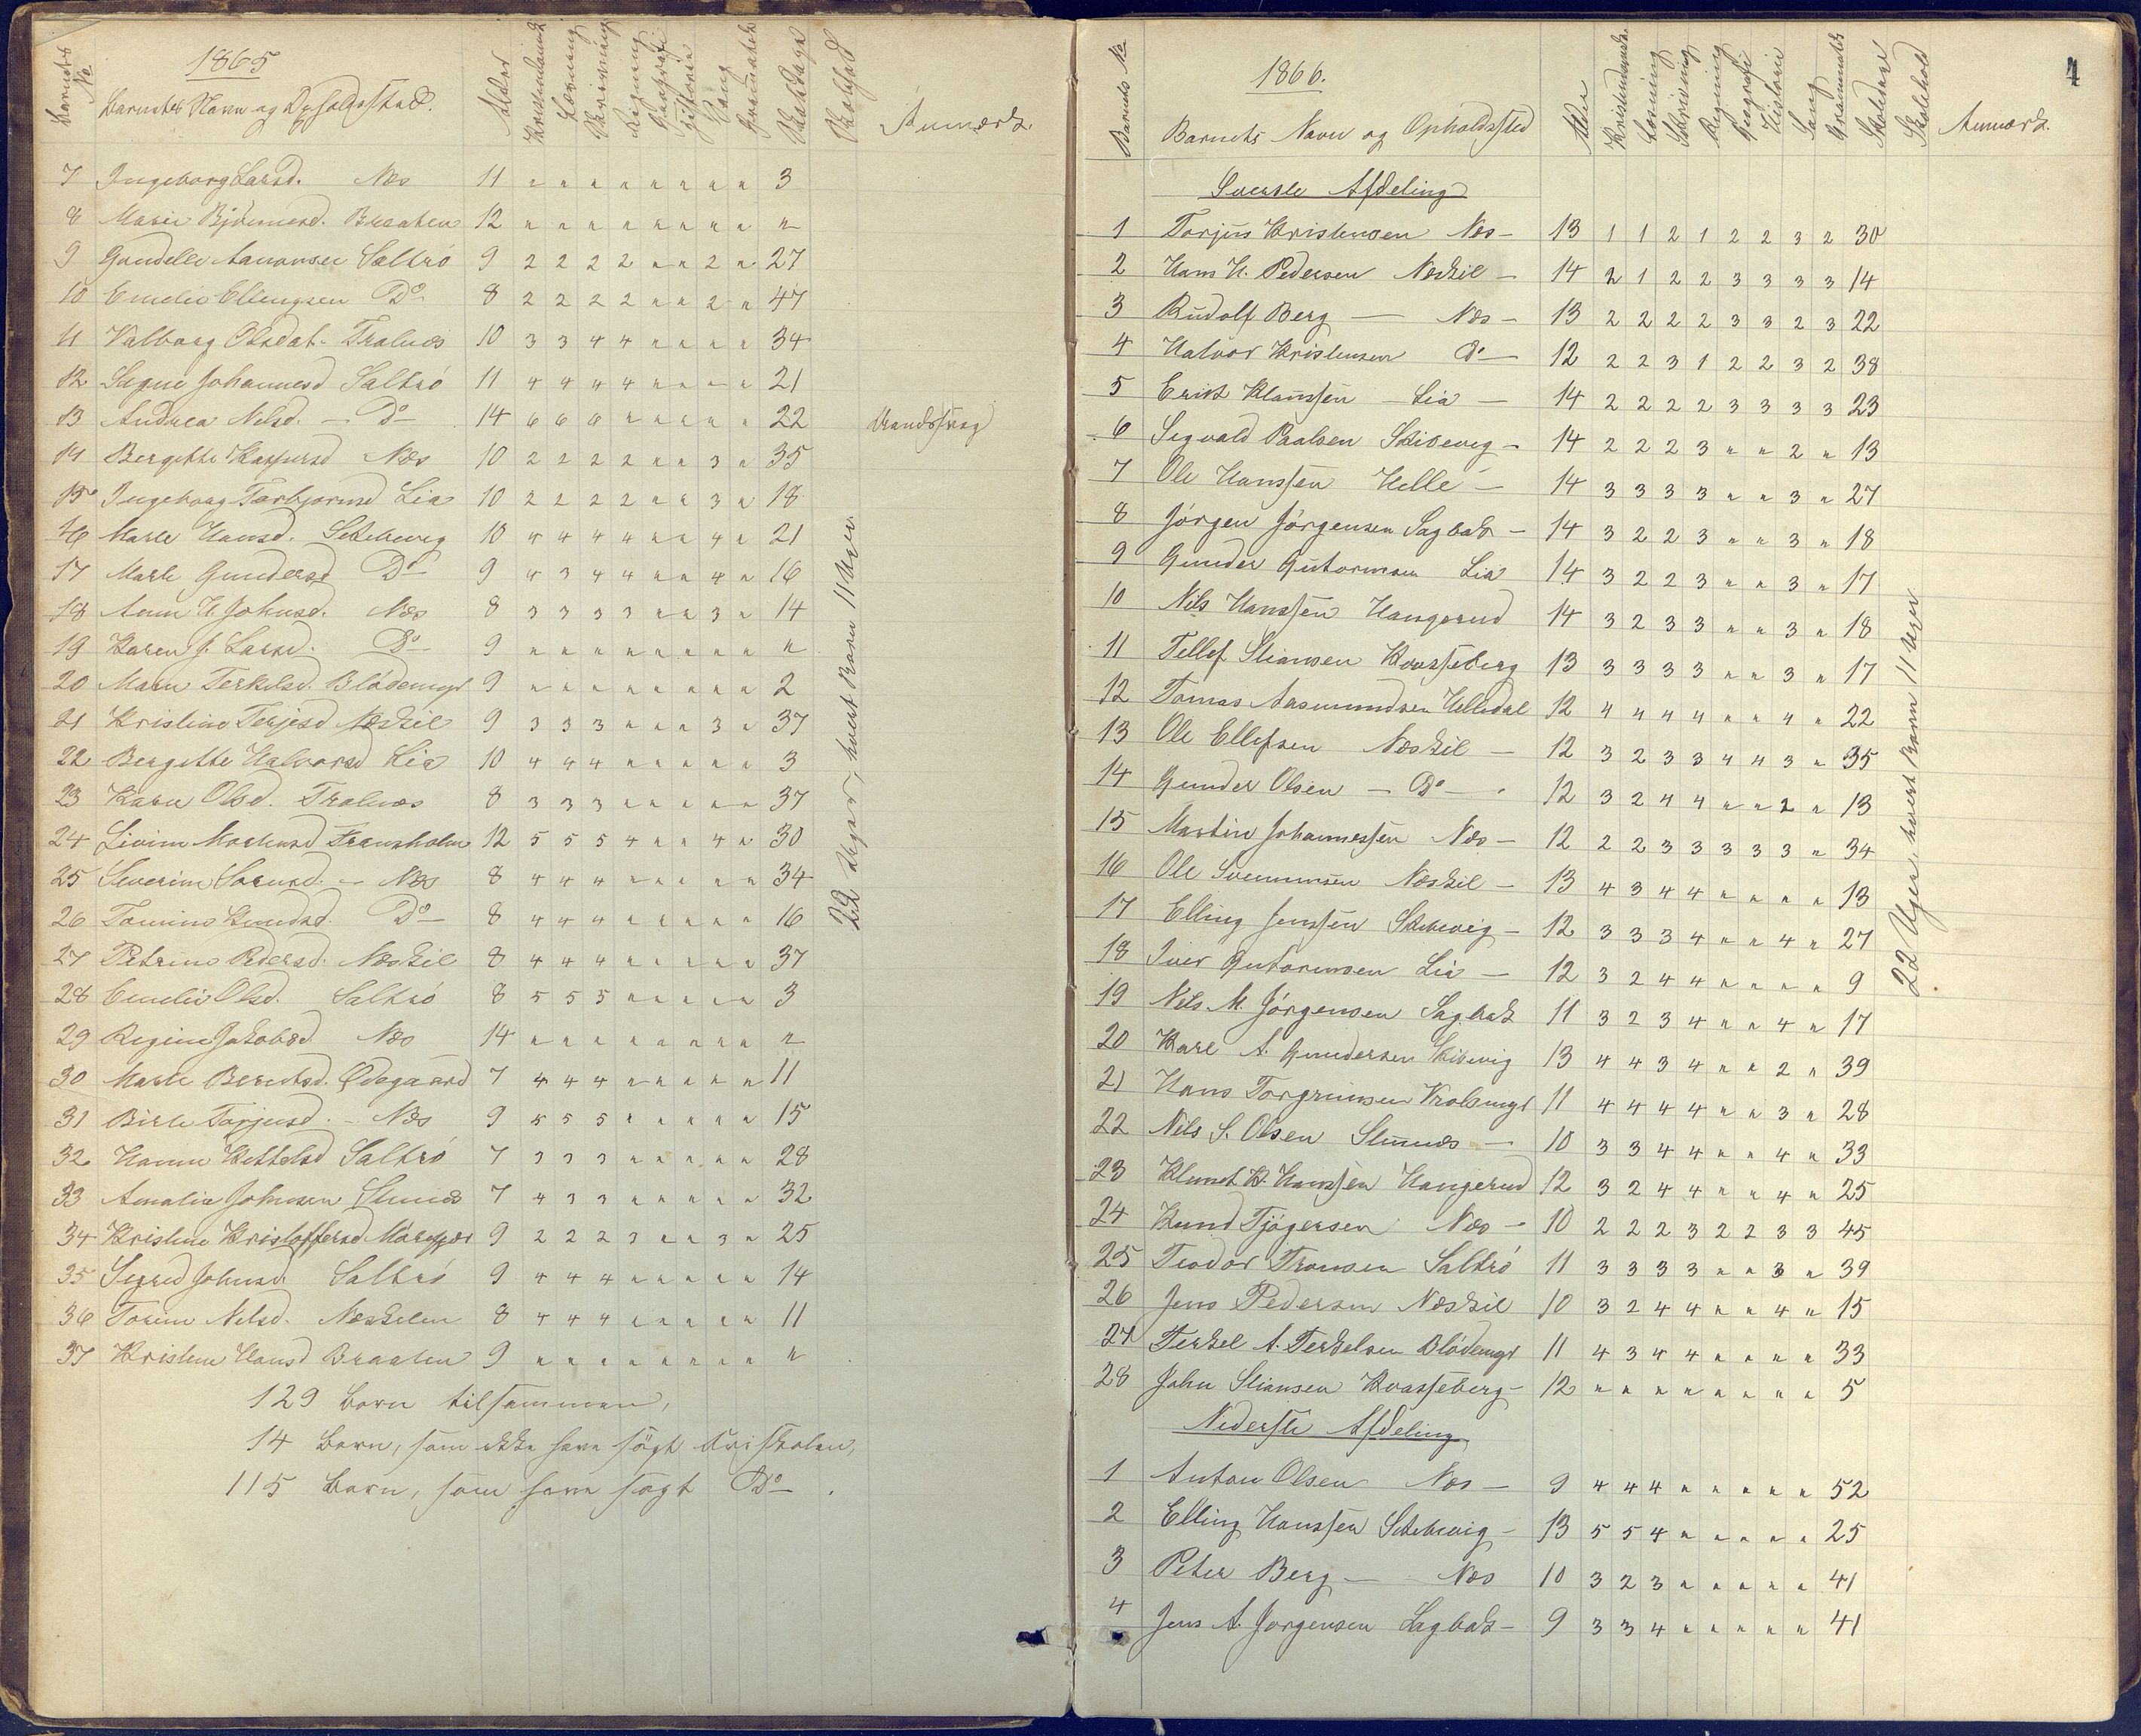 1865
Barnets No
Barnets Navn og Opholdssted.
Alder
Kristendomsk
Læsning
Skrivning
Regning
Geografi
Historie
Sang
Grammatik
Skoledage
Skolehold
Anmærk.
7 Ingeborg Larsd. Næs 11 " " " " " " " " 3
8 Marie Bjørnsd. Braaten 12 " " " " " " " " "
9 Gundelle Aanonsen Saltrö 9 2 2 2 2 " " 2 " 27
10 Emelie Ellingsen Do 8 2 2 2 2 " " 2 " 47
11 Valborg Olsdat. Tralnæs 10 3 3 4 4 " " " " 34
12 Signe Johannesd Saltrö 11 4 4 4 4 " " " " 21
13 Andrea Nilsd. – Do – 14 6 6 6 " " " " " 22 Aandssvag
14 Bergitte Kaspersd Næs 10 2 2 2 2 " " 3 " 35
15 Ingeborg Torbjørnsd Lia 10 2 2 2 2 " " 3 " 18
16 Marte Hansd. Skibevig 10 4 4 4 4 " " 4 " 21
17 Marte Gundersd Do 9 4 3 4 4 " " 4 " 16
18 Anne H. Johnsd. Næs 8 3 3 3 3 " " 3 " 14
19 Karen J. Larsd. Do 9 " " " " " " " " "
20 Maren Terkelsd. Blödemyr 9 " " " " " " " " 2
21 Kristine Terjesd Næskil 9 3 3 3 " " " 3 " 37
22 Bergitte Halvorsd Lia 10 4 4 4 " " " " " 3
23 Karen Olsd. Tralnæs 8 3 3 3 " " " " " 37
24 12 5 5 5 4 " " 4 " 30
25 Severine – Næs 8 4 4 4 " " " " " 34
26 Tomine Knudsd. Do 8 4 4 4 " " " " " 16
27 Petrine Pedersd. Næskil 8 4 4 4 " " " " " 37
28 Emelie Olsd. Saltrö 8 5 5 5 " " " " " 3
29 Regine Jakobsd Næs 14 " " " " " " " " "
30 Marte Berntsd. Ødegaard 7 4 4 4 " " " " " 11
31 Birte Torjusd. – Næs 9 5 5 5 " " " " " 15
32 Hanne Kettelsd Saltrö 7 3 3 3 " " " " " 28
33 Amalie Johnsen 7 4 3 3 " " " " " 32
34 Kristine Kristoffersd 9 2 2 2 3 " " 3 " 25
35 Sigred Johnsd. Saltrö 9 4 4 4 " " " " " 14
36 Torine Nilsd. Næskilen 8 4 4 4 " " " " " 11
37 Kristine Hansd Braaten 9 " " " " " " " " "
22 Uger, hvert Barn 11 Uger
129 Börn tilsammen,
14 Börn, som ikke have sögt Skolen,
115 Börn, som have sögt Do.
1
Barnets No
1866.
Barnets Navn og Opholdssted
Alder
Kristendomsk.
Læsning
Skrivning
Regning
Geografi
Historie
Sang
Grammatik
Skoledage
Skolehold
Anmærk.
Øverste Afdeling
1 Torjus Kristensen Næs – 13 1 1 2 1 2 2 3 2 30
2 Hans H. Pedersen Næskil – 14 2 1 2 2 3 3 3 3 14
3 Rudolf Berg – Næs – 13 2 2 2 2 3 3 2 3 22
4 Halvor Kristensen Do – 12 2 2 3 1 2 2 3 2 38
5 Erik Klamsen – Lia – 14 2 2 2 2 3 3 3 3 23
6 Sigvald Paalsen Skibevig – 14 2 2 2 3 " " 2 " 13
7 Ole Hanssen Helle – 14 3 3 3 3 " " 3 " 27
8 Jörgen Jörgensen Sagbak – 14 3 2 2 3 " " 3 " 18
9 Gunder Gutormsen Lia 14 3 2 2 3 " " 3 " 17
10 Nils Hanssen Hangerud 14 3 2 3 3 " " 3 " 18
11 Tellef Stiansen Kvasseberg 13 3 3 3 3 " " 3 " 17
12 Tomas Aasmundsen Helledal 12 4 4 4 4 " " 4 " 22
13 Ole Ellefsen Næskil – 12 3 2 3 3 4 4 3 " 35
14 Gunder Olsen – Do – 12 3 2 4 4 " " 2 " 13
15 Martin Johannessen Næs – 12 2 2 3 3 3 3 3 " 34
16 Ole Svenningsen Næskil – 13 4 3 4 4 " " " " 13
17 Elling Jenssen Skibevig – 12 3 3 3 4 " " 4 " 27
18 Iver Gutormsen Lia – 12 3 2 4 4 " " " " 9
19 Nils M. Jörgensen Sagbak 11 3 2 3 4 " " 4 " 17
20 Karl A. Gundersen Skibevig 13 4 4 3 4 " " 2 " 39
21 Hans Torgrimsen Krolsmyr 11 4 4 4 4 " " 3 " 28
22 Nils S. Olsen – 10 3 3 4 4 " " 4 " 33
23 Klemet K. Hanssen Hangerud 12 3 2 4 4 " " 4 " 25
24 Knud Tjögersen Næs – 10 2 2 2 3 2 2 3 3 45
25 Teodor Tronsen Saltrö 11 3 3 3 3 " " 3 " 39
26 Jens Pedersen Næskil 10 3 2 4 4 " " 4 " 15
27 Terkel A. Terkelsen Blödemyr 11 4 3 4 4 " " " " 33
28 John Stiansen Kvasseberg – 12 " " " " " " " " 5
22 Uger, hvert Barn 11 Uger
Nederste Afdeling
1 Anton Olsen Næs – 9 4 4 4 " " " " " 52
2 Elling Hanssen Skibevig – 13 5 5 4 " " " " " 25
3 Peter Berg – Næs 10 3 2 3 " " " " " 41
4 Jens A. Jörgensen Sagbak – 9 3 3 4 " " " " " 41